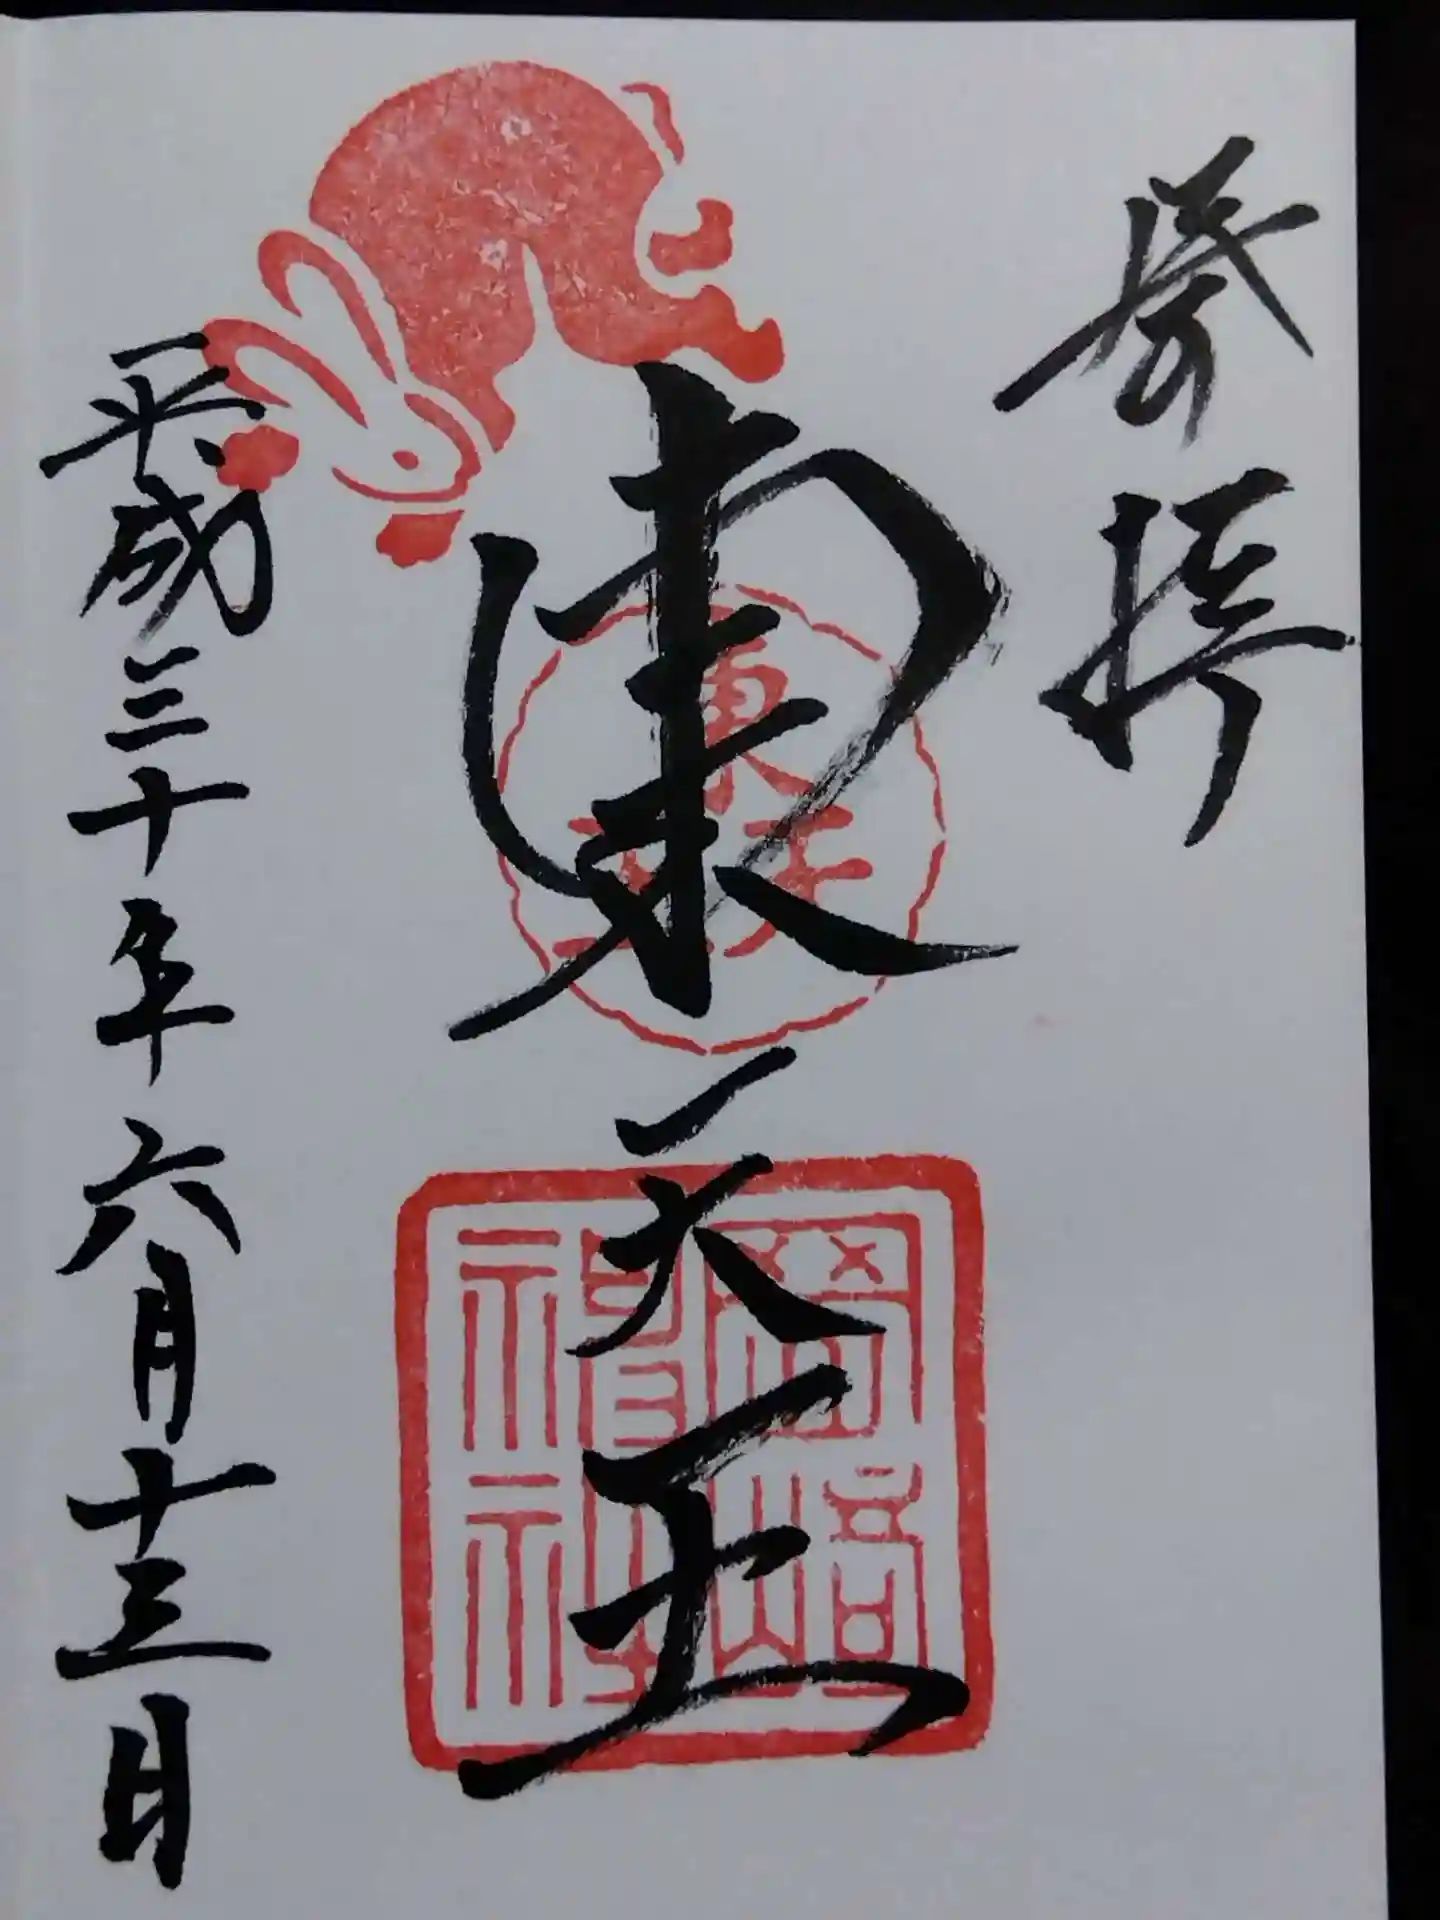 奉拝
東天王
東天王
岡﨑神社
平成三十年六月十三日